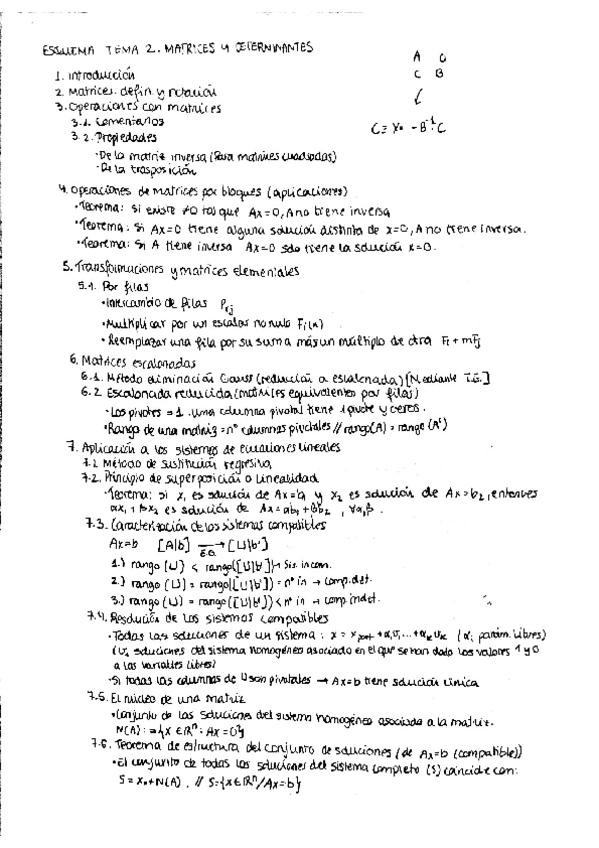 ESQUEMA TEMA 2. MATRICES Y DETERMINANTES
A O
C B
1. Introducción
2. Matrices. defin y notación
3. Operaciones con matrices
3.1. Comentarios
3.2. Propiedades
· De la matriz inversa (Para matrices cuadradas)
· De la trasposición
4. Operaciones de matrices por bloques (aplicaciones)
· Teorema: si existe ≠0 tal que Ax=0, A no tiene inversa
· Teorema: Si Ax=0 tiene alguna solución distinta de x=0, A no tiene inversa.
· Teorema: Si A tiene inversa Ax=0 solo tiene la solución x=0.
5. Transformaciones y matrices elementales
5.1. Por filas
· Intercambio de filas Pij
· Multiplicar por un escalar no nulo
· Reemplazar una fila por su suma más un múltiplo de otra Fi + mFj
6. Matrices escalonadas
6.1. Método eliminación Gauss (reducción a escalonada) [Mediante T.E.]
6.2 Escalonada reducida (matrices equivalentes por filas)
· Los pivotes = 1. una columna pivotal tiene 1 pivote y ceros.
· Rango de una matriz = nº columnas pivotales // rango(A) = rango(Aᵗ)
7. Aplicación a los sistemas de ecuaciones lineales
7.1 Método de sustitución regresiva
7.2. Principio de superposición o linealidad
· Teorema: si x₁ es solución de Ax=b₁ y x₂ es solución de Ax=b₂, entonces
αx₁ + βx₂ es solución de Ax=αb₁+βb₂, ∀α,β.
7.3. Caracterización de los sistemas compatibles
Ax=b [A|b] → [U|b']
1.) rango (U) < rango([U|b']) → Sis. incom.
2.) rango (U) = rango([U|b']) = nº in → comp. det.
3.) rango (U) = rango([U|b']) < nº in → comp. indet.
7.4. Resolución de los sistemas compatibles
· Todas las soluciones de un sistema: x = xpart + α₁v₁ ... + αₖvₖ (αᵢ param. libres)
(vᵢ soluciones del sistema homogéneo asociado en el que se han dado los valores 1 y 0
a las variables libres)
· Si todas las columnas de U son pivotales → Ax=b tiene solución única
7.5. El núcleo de una matriz
· Conjunto de las soluciones del sistema homogéneo asociado a la matriz.
N(A) := {x ∈ ℝⁿ : Ax=0}
7.6. Teorema de estructura del conjunto de soluciones (de Ax=b (compatible))
· El conjunto de todas las soluciones del sistema completo (S) coincide con:
S = x₀ + N(A). // S={x∈ℝⁿ/Ax=b}